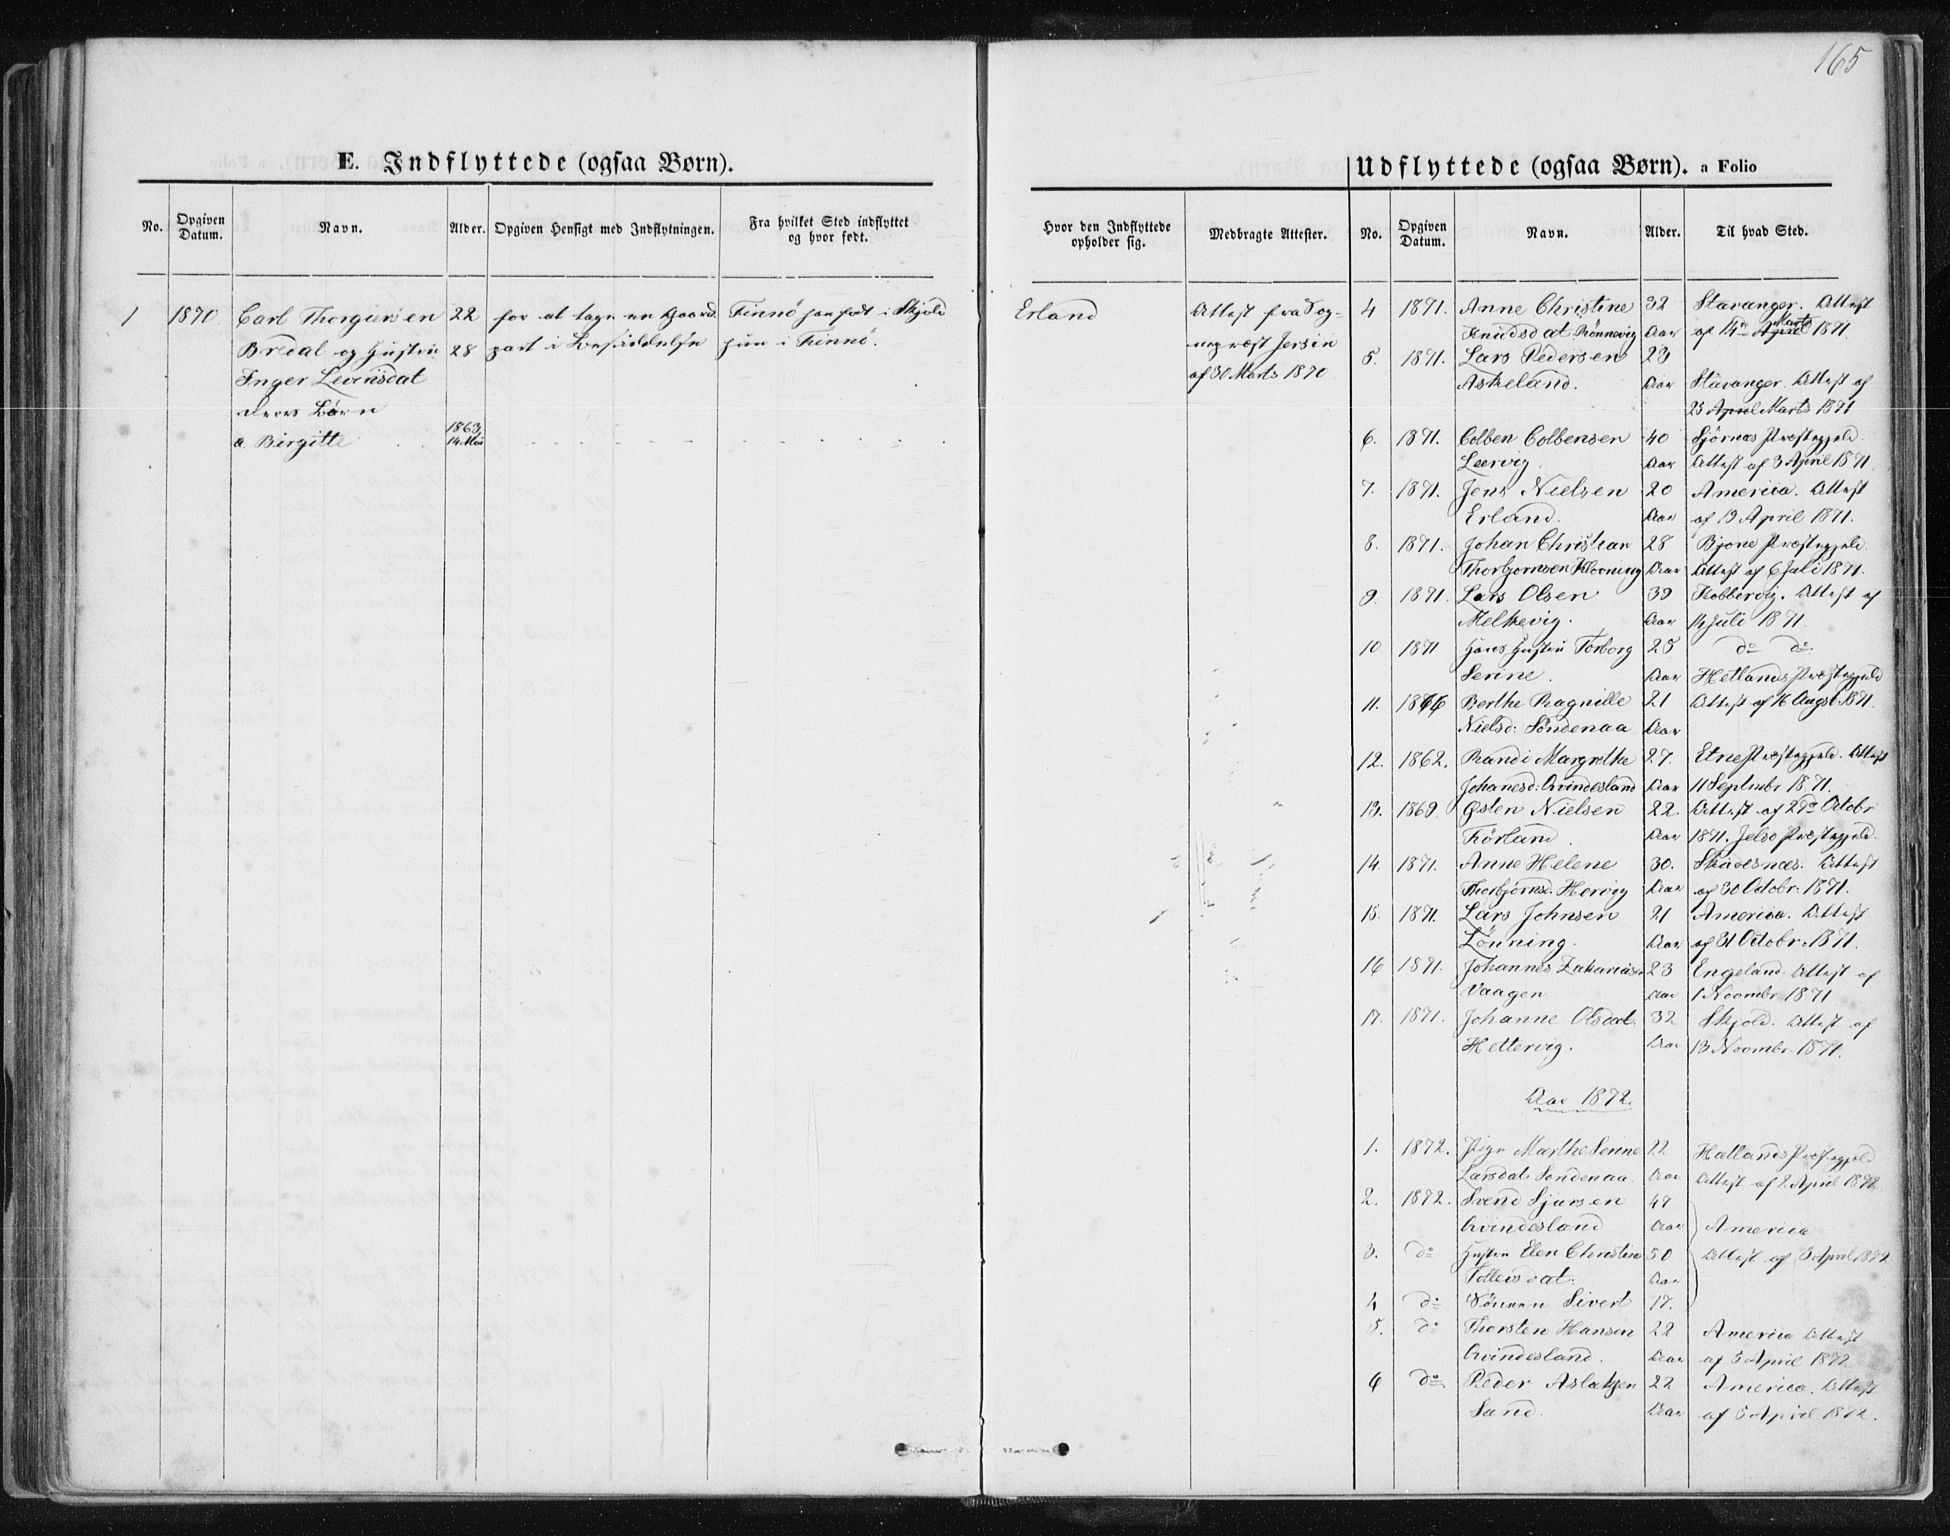 165
E. Indflyttede (ogsaa Børn).
No. Opgiven Datum. Navn. Alder. Opgiven Hensigt med Indflytningen. Fra hvilket Sted indflyttet og hvor født.
1 1870 Carl Thorgiersen 22 for at tage en Gaard- Finnø han født i Skjold
Bredal og Hustru 28 part i Besiddelse hun i Finnø.
Inger
deres Børn
1863
a. Birgitte 14 Mai
Udflyttede (ogsaa Børn). a Folio
Hvor den Indflyttede opholder sig. Medbragte Attester. No. Opgiven Datum. Navn. Alder. Til hvad Sted.
Erland Attest fra Sog-
nepræst Jersin
af 30 Marts 1870
4 1871. Anne Christine 32 Stavanger. Attest
Knudsdat Rönnevig Aar af 14de April Marts 1871
5. 1871. Lars Pedersen 23
Askeland. Aar Stavanger. Attest af
25 April Marts 1871
6. 1871. Colben Colbensen 40 Sjörnæs Præstegjeld.
Leervig. Aar Attest af 3 April 1871
7. 1871. Jens Nielsen 20 America. Attest
Erland. Aar af 19 April 1871.
8. 1871. Johan Christian 28 Præstegjeld.
Thorbjornsen Aar Attest af 6 Juli 1871.
9. 1871. Lars Olsen 39 Kobbervig. Attest af
Melkevig. Aar 14 Juli 1871.
10 1871 Hans Hustru Torborg 25 do do
Serine. Aar Hetlands Præstegjeld
11. 1866 Berthe Ragnille 21 Attest af 16 Augst. 1871.
Nielsd: Söndenaa Aar
12. 1862. Randi Margrethe 27. Etne Præstegjeld. Attest
Johanesd: Qvindesland Aar 11 Septmbr 1871.
13. 1869 Østen Nielsen 22. Attest af 2de Octobr
Körland. Aar 1871. Jelse Præstegjeld.
14. 1871. Anne Helene 30. Skudesnæs. Attest
Thorbjörnsd. Hervig Aar af 30 Octobr. 1871.
15. 1871. Lars Johnsen 21 America. Attest
Lönning. Aar af 31 Octobr. 1871.
16 1871. Johannes Zakariasen 23 Engeland. Attest af
Vaagen Aar 1 Novmbr 1871
17. 1871. Johanne Olsdat. 32 Skjold. Attest af
Hettervig. Aar 13 Novmbr. 1871.
Aar 1872.
1. 1872. Pige Marthe Serine 22 Hatlands Præstegjeld
Larsdat Söndenaa Aar Attest af 2 April 1872.
2. 1872. Svend Sjursen 47
Qvindesland Aar America
3. do Hustru Elen Christine 50 Attest af 3 April 1872
Tollevsdat. Aar
4 do Sönnen Sivert 17.
5. do Thorsten Hansen 22 America Attest
Qvindesland. Aar af 5 April 1872
6 do Peder Aslaksen 22 America. Attest
Sand. Aar af 5 April 1872.